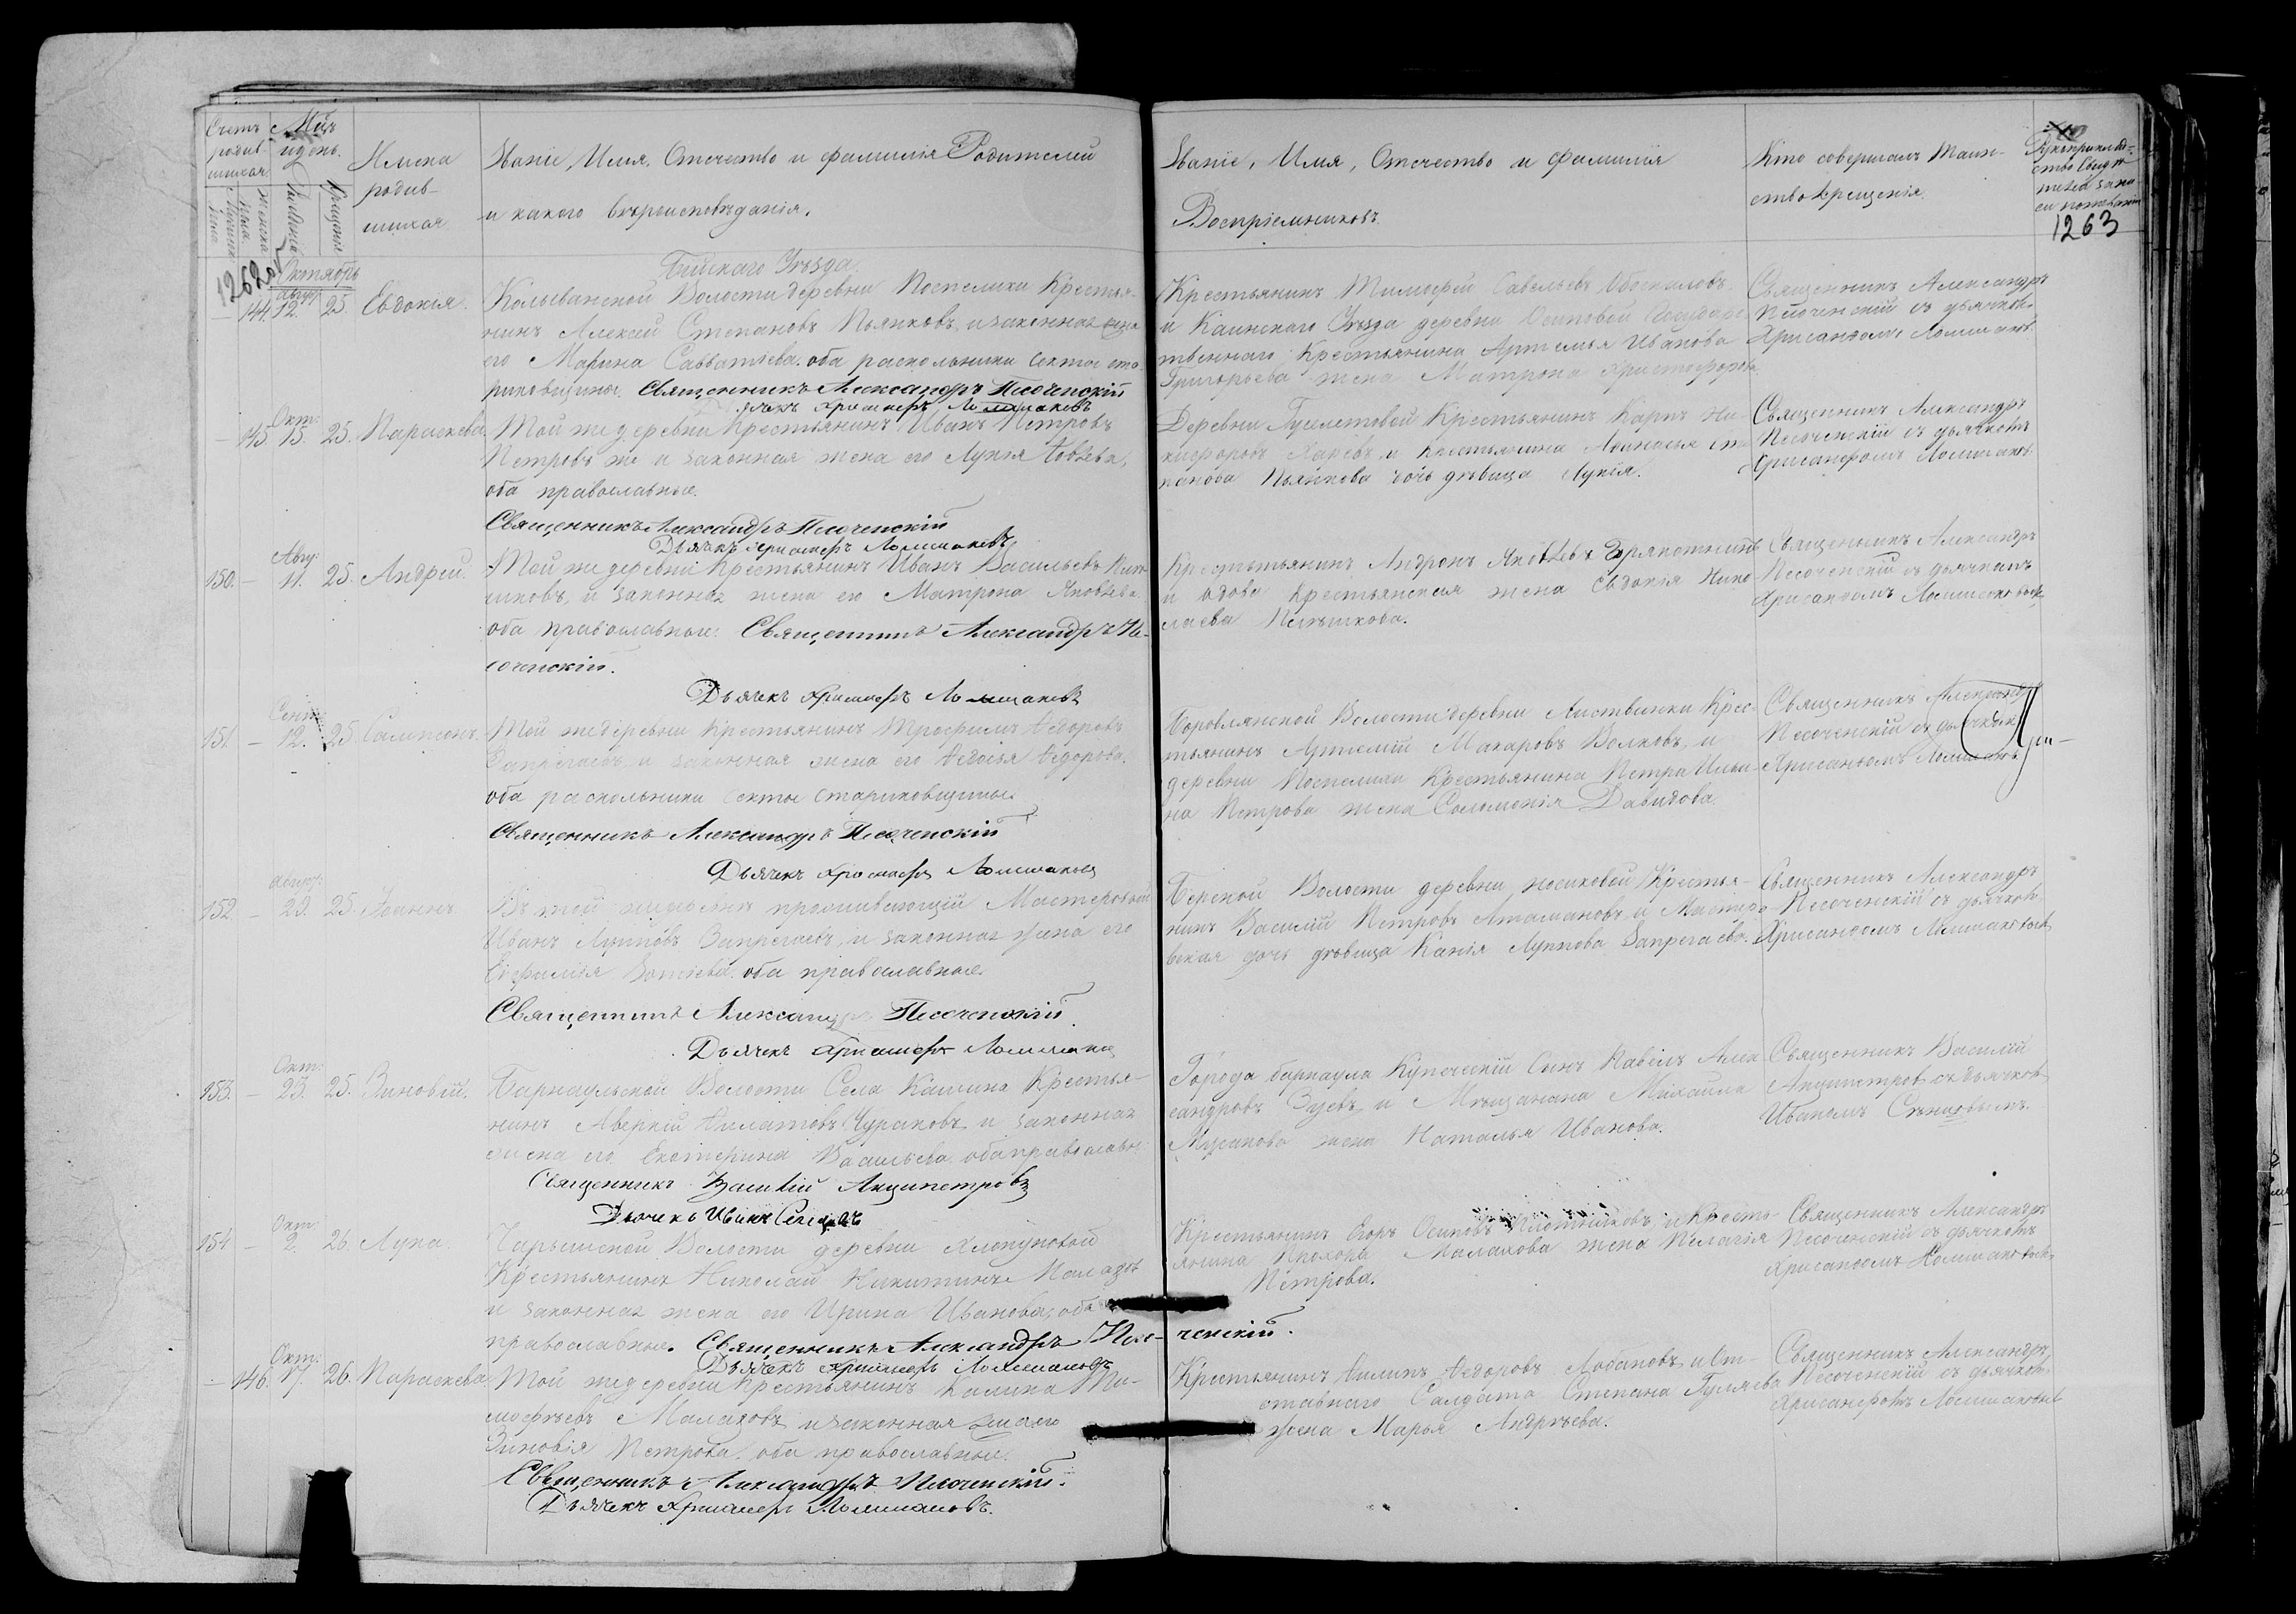 Счетъ
родив
шихся
Мцъ
и день.
Имена
родив-
шихся
Званіе, Имя, Отечество и фамилія Родителей
и какого вѣроисповѣданія.
Званіе, Имя, Отечество и фамилія
Воспріемниковъ.
Кто совершалъ таин-
ство крещенія.
Рукоприклад-
ство свидѣ-
телей запи-
си по желанію
1263
1262об
Октябрь
Бійскаго Уѣзда.
144. 12. 25. Евдокія.
Колыванской Волости деревни Поспелихи Крестья-
нинъ Алексѣй Степановъ Пьянковъ, и законная жена
его Марина Савватіева. оба раскольники секты ста-
риковщины. Священникъ Александръ Песоченскій
Дьячекъ Хрисанфъ Ломшаковъ
Крестьянинъ Тимофей Савельевъ
и Каинскаго Уѣзда деревни Осиповой Государс-
твеннаго Крестьянина Артемья Иванова
Григорьева жена Матрона Христофорова.
Священникъ Александръ
Песоченскій съ дьячком
Хрисанѳомъ Ломшаков.
Окт:
145 15. 25. Параскева.
Той же деревни Крестьянинъ Иванъ Петровъ
Петровъ же и законная жена его Лукія
оба православные.
Священникъ Александръ Песоченскій
Дьячекъ Хрисанфъ Ломшаковъ
Деревни Гуселетовой Крестьянинъ Карпъ Ни-
кифоровъ и крестьянина Аѳанасья Сте-
панова Пьянкова дочь дѣвица Лукія.
Священникъ Александръ
Песоченскій съ дьячкомъ
Хрисанфомъ Ломшаков.
Авгу:
150. — 11. 25. Андрей.
Той же деревни Крестьянинъ Иванъ Васильевъ
шковъ, и законная жена его Матрона Яковлева.
оба православные. Священникъ Александръ Пе-
соченскій.
Дьячекъ Хрисанфъ Ломшаковъ
Крестьянинъ Андронъ Яковлевъ
и вдова Крестьянская жена Евдокія Нико
лаева Пелѣшкова.
Священникъ Александръ
Песоченскій съ дьячкомъ
Хрисанѳомъ Ломшаковым
Сент:
151. — 12. 25. Сампсонъ.
Той же деревни Крестьянинъ Трофимъ Ѳедоровъ
Запрегаевъ, и законная жена его Ѳедосья Ѳедорова.
оба раскольники секты стариковщины.
Священникъ Александръ Песоченскій
Дьячекъ Хрисанфъ Ломшаковъ
Боровлянской Волости деревни Листвянки Крес-
тьянинъ Артемій Макаровъ Волковъ, и
деревни Поспелихи Крестьянина Петра Ильи-
на Петрова жена Соломонія Давидова.
Священникъ Александръ
Песоченскій съ дьячком
Хрисанѳомъ Ломшаков.
Авгус:
152 — 29. 25. Іоаннъ.
Въ той же деревнѣ проживающій Мастеровый
Иванъ Лупповъ Запрегаевъ, и законная жена его
Евфимія Зотѣева. оба православные.
Священникъ Александръ Песоченскій
Дьячекъ Хрисанфъ Ломшаковъ
Бердской Волости деревни Крестья-
нинъ Василій Петровъ Атамановъ, и Мастеро-
вская дочь дѣвица Луппова Запрегаева.
Священникъ Александръ
Песоченскій съ дьячком
Хрисанѳомъ Ломшаковым
Окт:
153. — 23. 25. Зиновій.
Барнаульской Волости Села Крестья-
нинъ Аверкій Филатовъ Чураковъ и законная
жена его Екатерина Васильева. оба православн.
Священникъ Василій Акципетровъ
Дьячекъ Иванъ
Города Барнаула Купеческій Сынъ Павелъ Алек
сандровъ Зуевъ, и Мѣщанина Михаила
жена Наталья Иванова.
Священникъ Василій
Акципетров съ дьячком
Иваномъ
Окт:
154 — 2. 26. Лука.
Чарышской Волости деревни Хлопуновой
Крестьянинъ Николай Никитинъ
и законная жена его Ирина Иванова, оба
православные. Священникъ Александръ Песо-ченскій.
Дьячекъ Хрисанфъ Ломшаковъ
Крестьянинъ Егоръ Осиповъ Плотниковъ, и Кресть-
янина Прохора Малахова жена Пелагія
Петрова.
Священникъ Александръ
Песоченскій съ дьячкомъ
Хрисанѳомъ Ломшаковым
Окт:
— 146. 17. 26. Параскева
Той же деревни Крестьянинъ Калина Ти-
мофѣевъ Малаховъ, и законная жена его
Зиновія Петрова. оба православные.
Священникъ Александръ Песоченскій.
Дьячекъ Хрисанфъ Ломшаковъ.
Крестьянинъ Филипъ Ѳедоровъ Лобановъ, и От-
ставнаго Салдата Степана Гуляева
жена Марья Андрѣева.
Священникъ Александръ
Песоченскій съ дьячком
Хрисанфомъ Ломшаковым